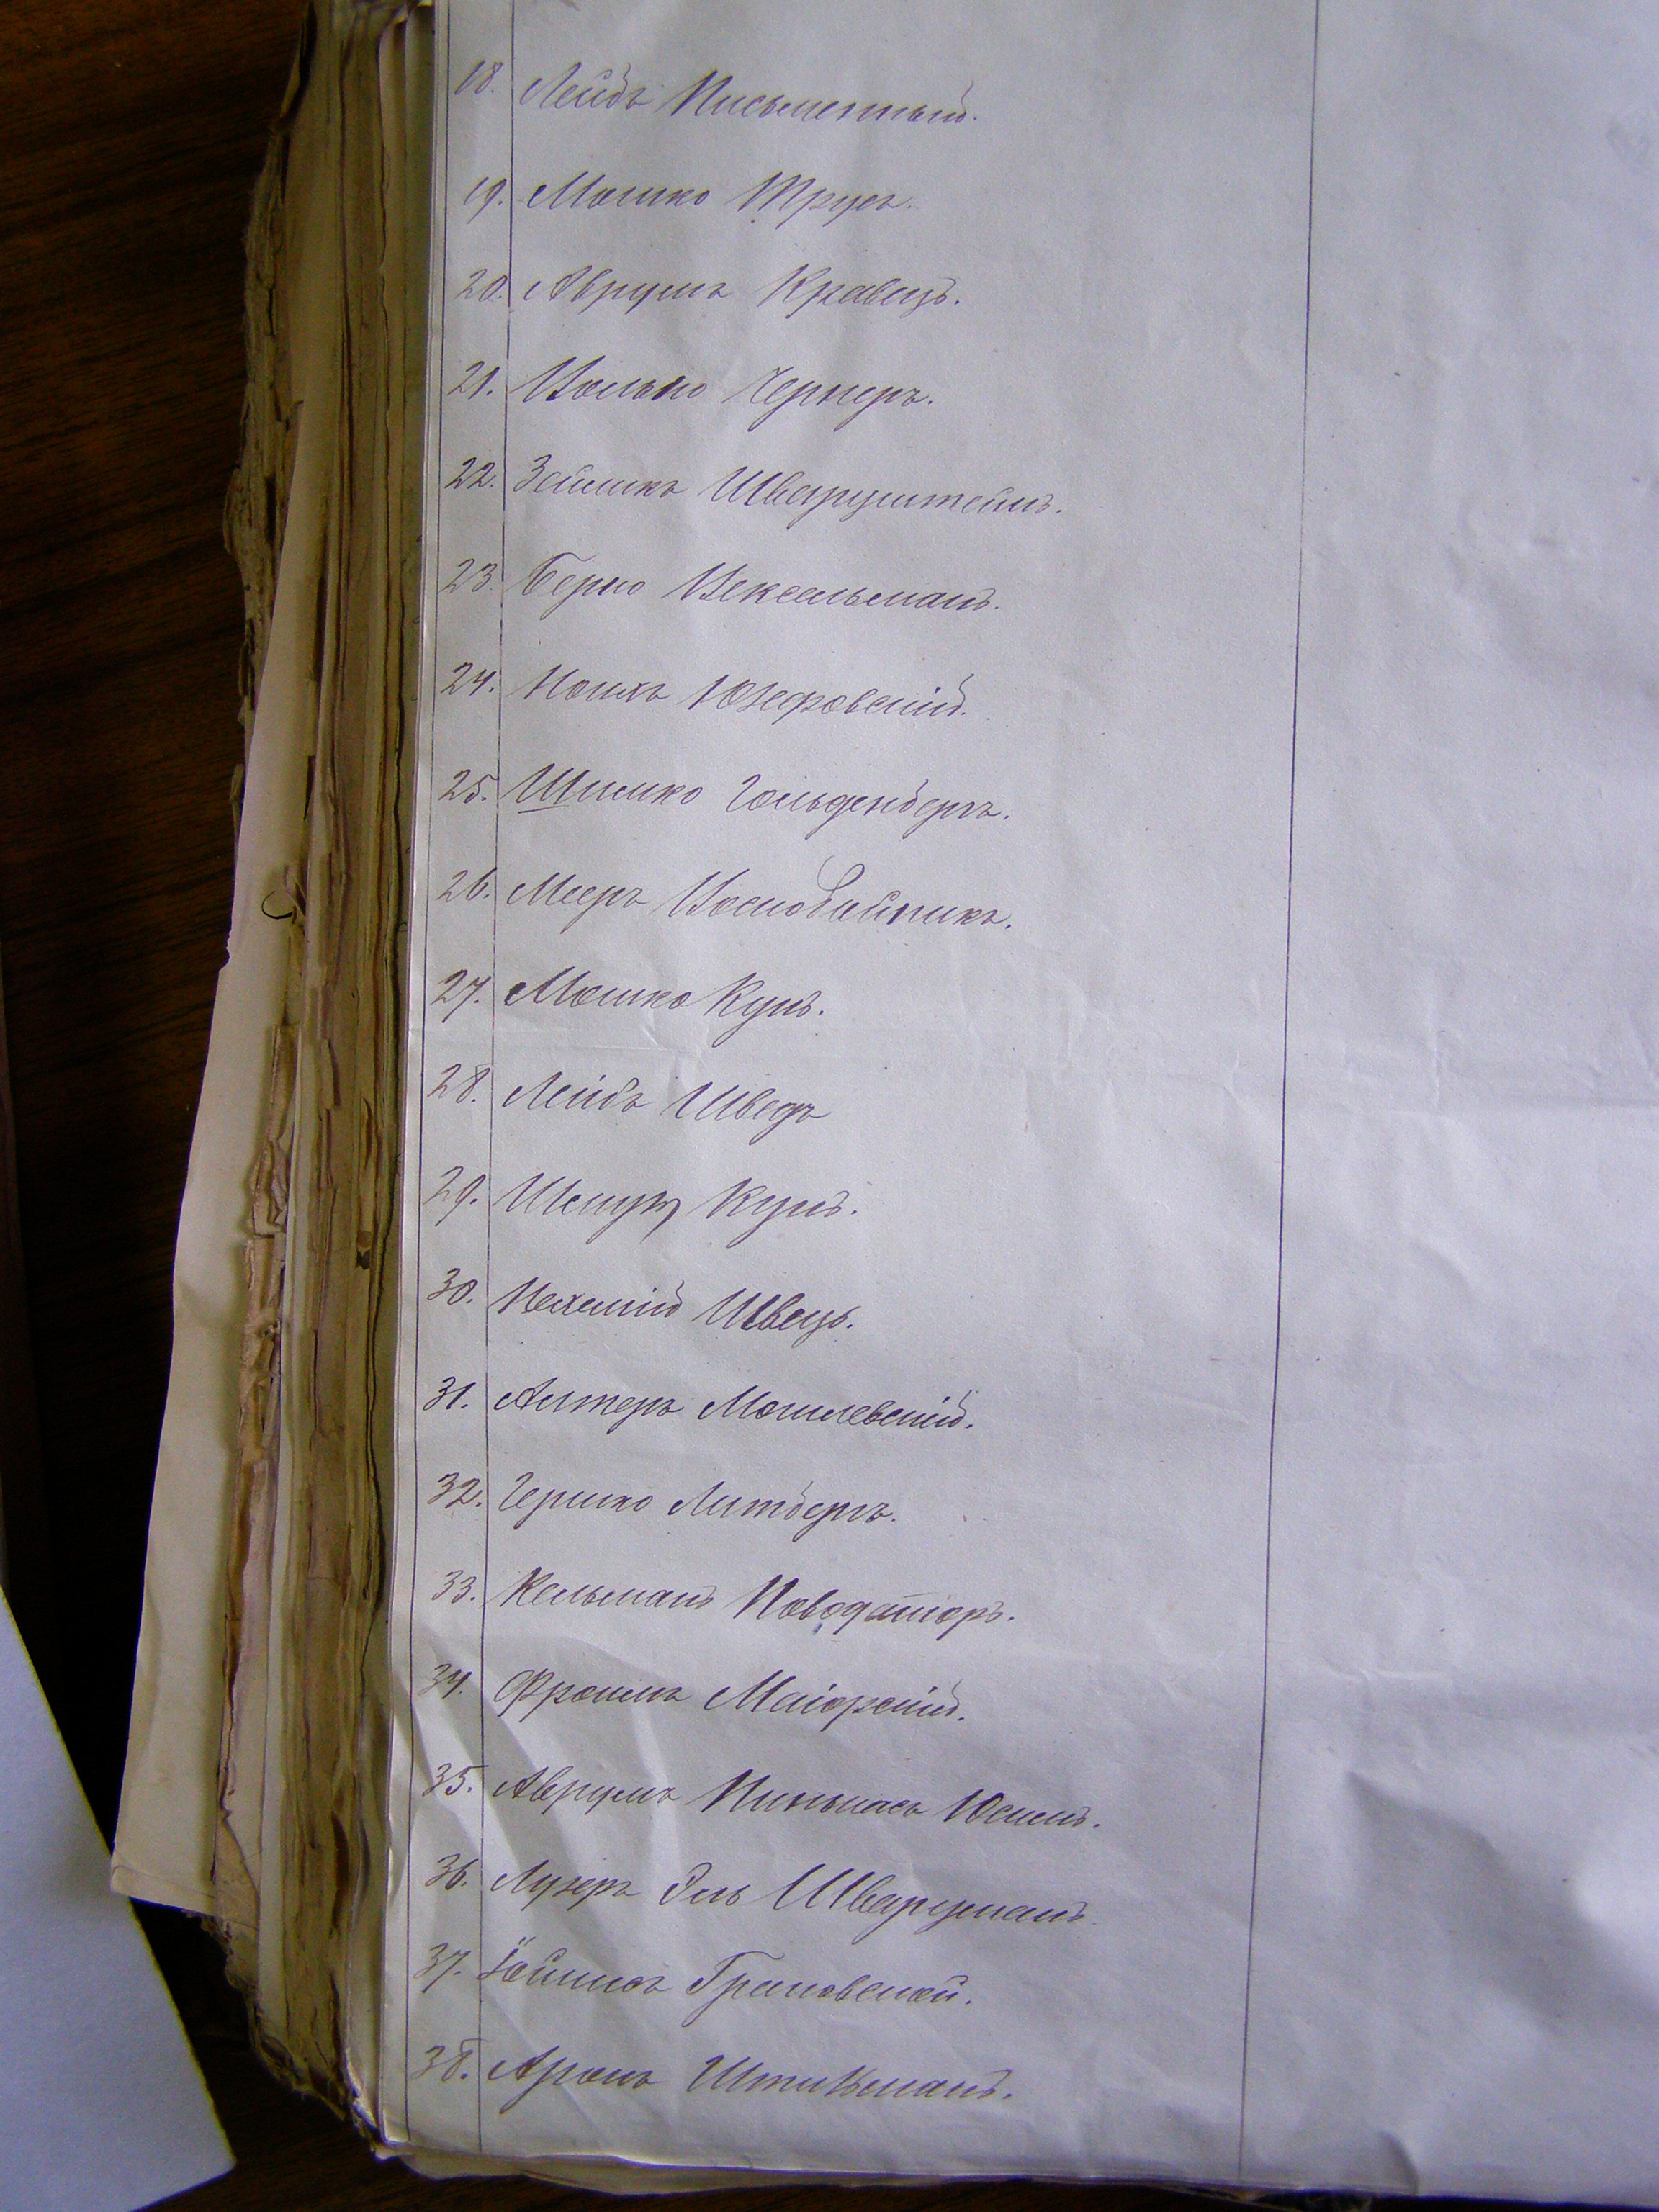 18. Лейбъ Письменный.
19. Мошко Трусъ.
20. Аврумъ Кравецъ.
21. Волько Чернеръ.
22. Зейликъ Шварцштейнъ.
23. Берко Вексельманъ.
24. Ноихъ Юзефовскій.
25. Шимко Гольденбергъ.
26. Мееръ Воскобойникъ.
27. Мошко Кунъ.
28. Лейбъ Шведъ
29. Шмуль Кунъ.
30. Нехемій Швецъ.
31. Алтеръ Могилевскій.
32. Гершко Литбергъ.
33. Кельманъ
34. Фроимъ Маіорскій.
35. Аврумъ Пинькасъ Юсимъ.
36. Лузеръ Эль Шварцманъ.
37. Грановской.
38. Аронъ Штикманъ.